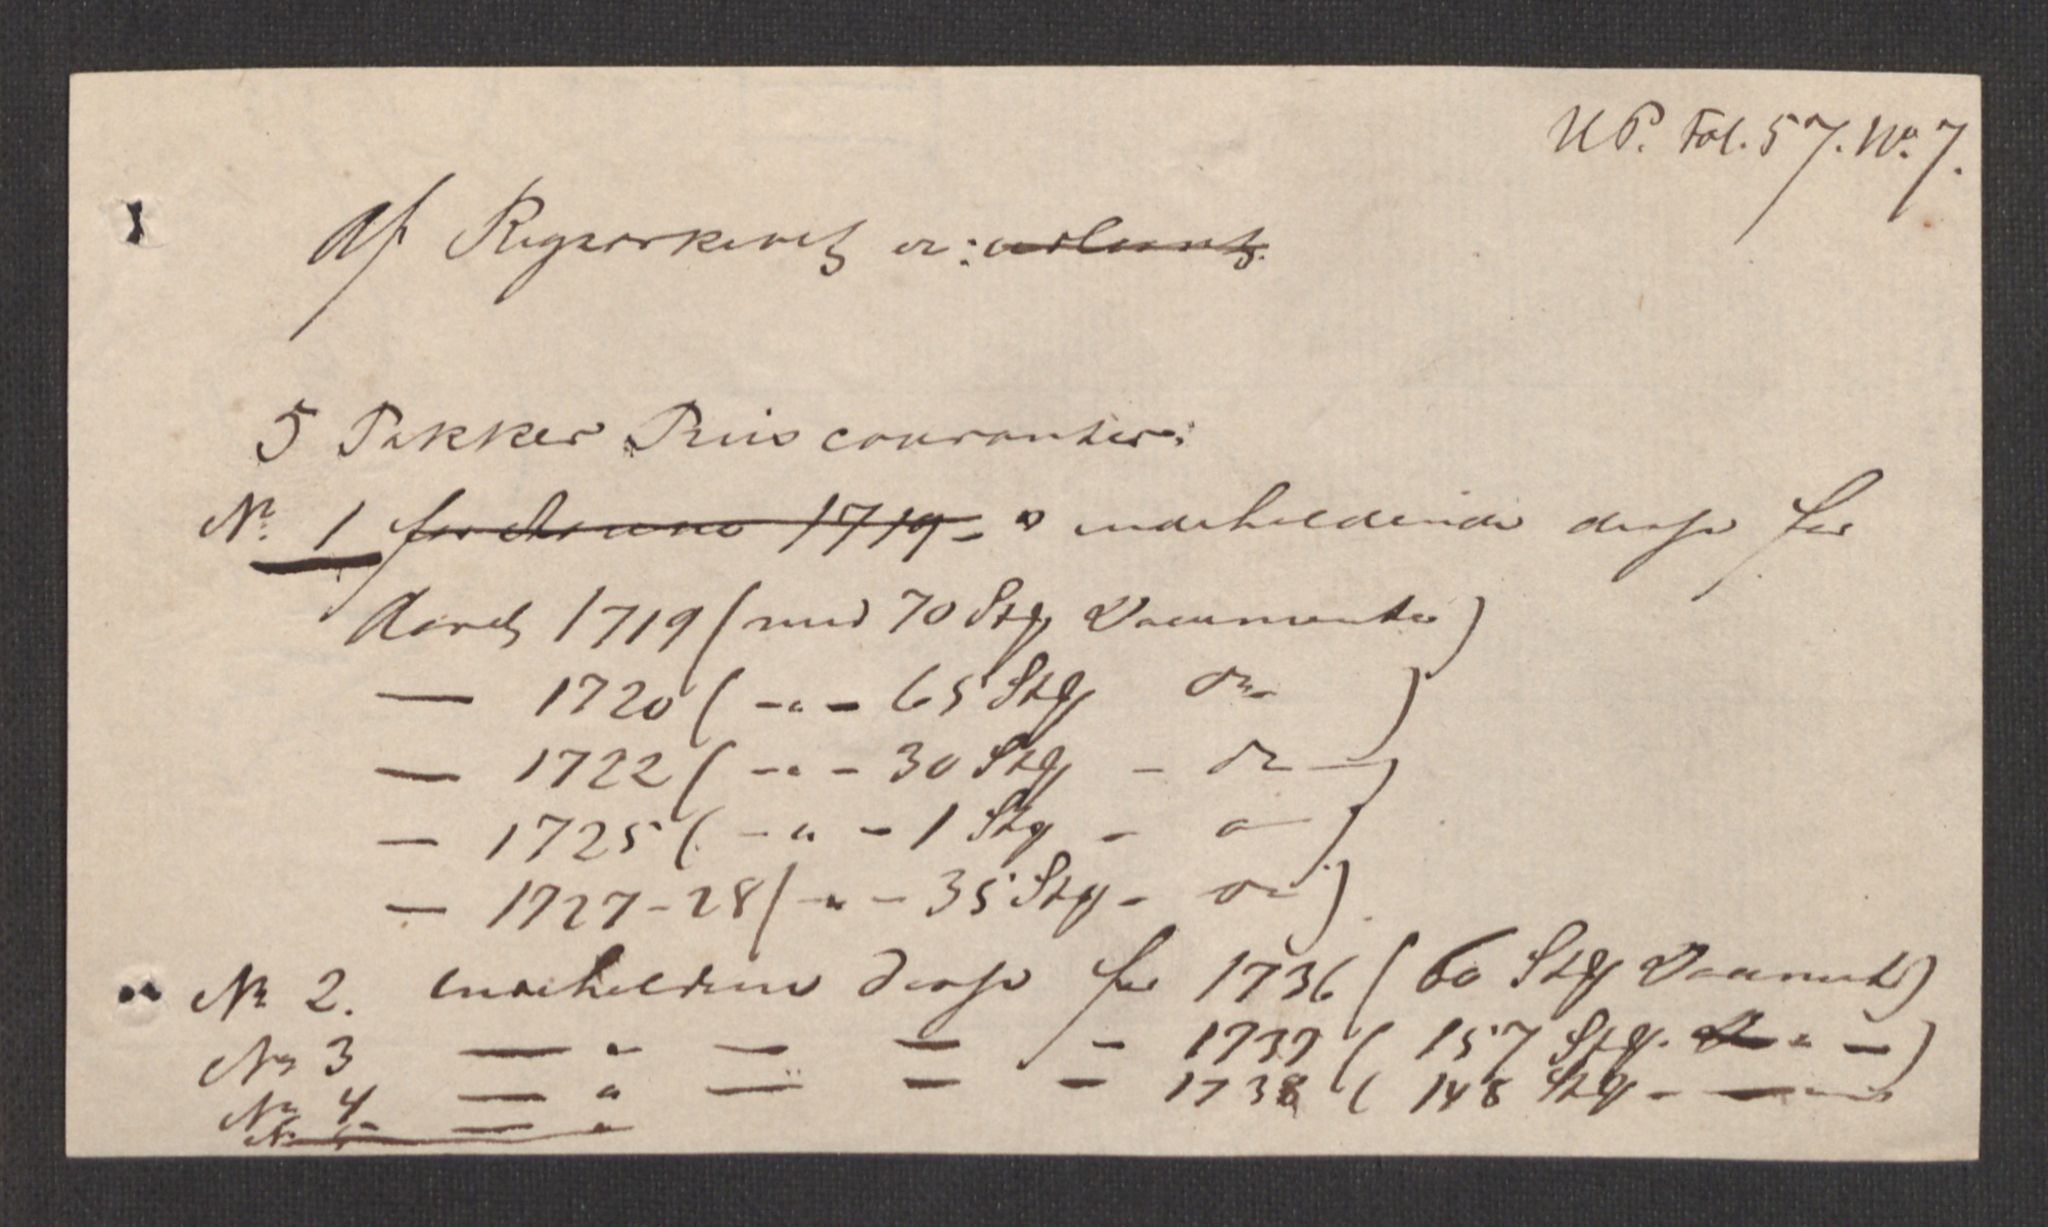 U P. Fol. 57. No. 7.
Af Rigsarkivet er: udlaant.
5 Pakker Priiscouranter:
No. 1 for Aarene 1719 - indeholdende disse for
Aaret 1719 (med 70 Stk Documenter)
— 1720 ( - " - 65 Stk do )
— 1722 ( - " - 30 Stk - do - )
— 1725 ( - " - 1 Stk - )
— 1727-28 ( - " - 35 Stk - do )
No 2. indeholdende disse for 1736 ( 60 Stk Document )
No 3 — " — — - 1737 ( 157 Stk. " — )
No 4 — " — — - 1738 ( 148 Stk - —
No 5 — "